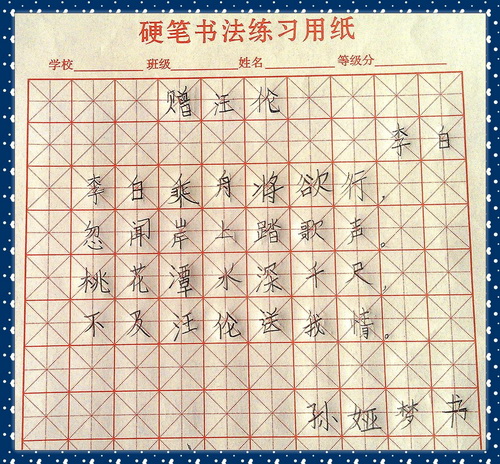 硬笔书法练习用纸
学校 班级 姓名 等级分
赠汪伦
李白
李白乘舟将欲行，
忽闻岸上踏歌声。
桃花潭水深千尺，
不及汪伦送我情。
孙娅梦书